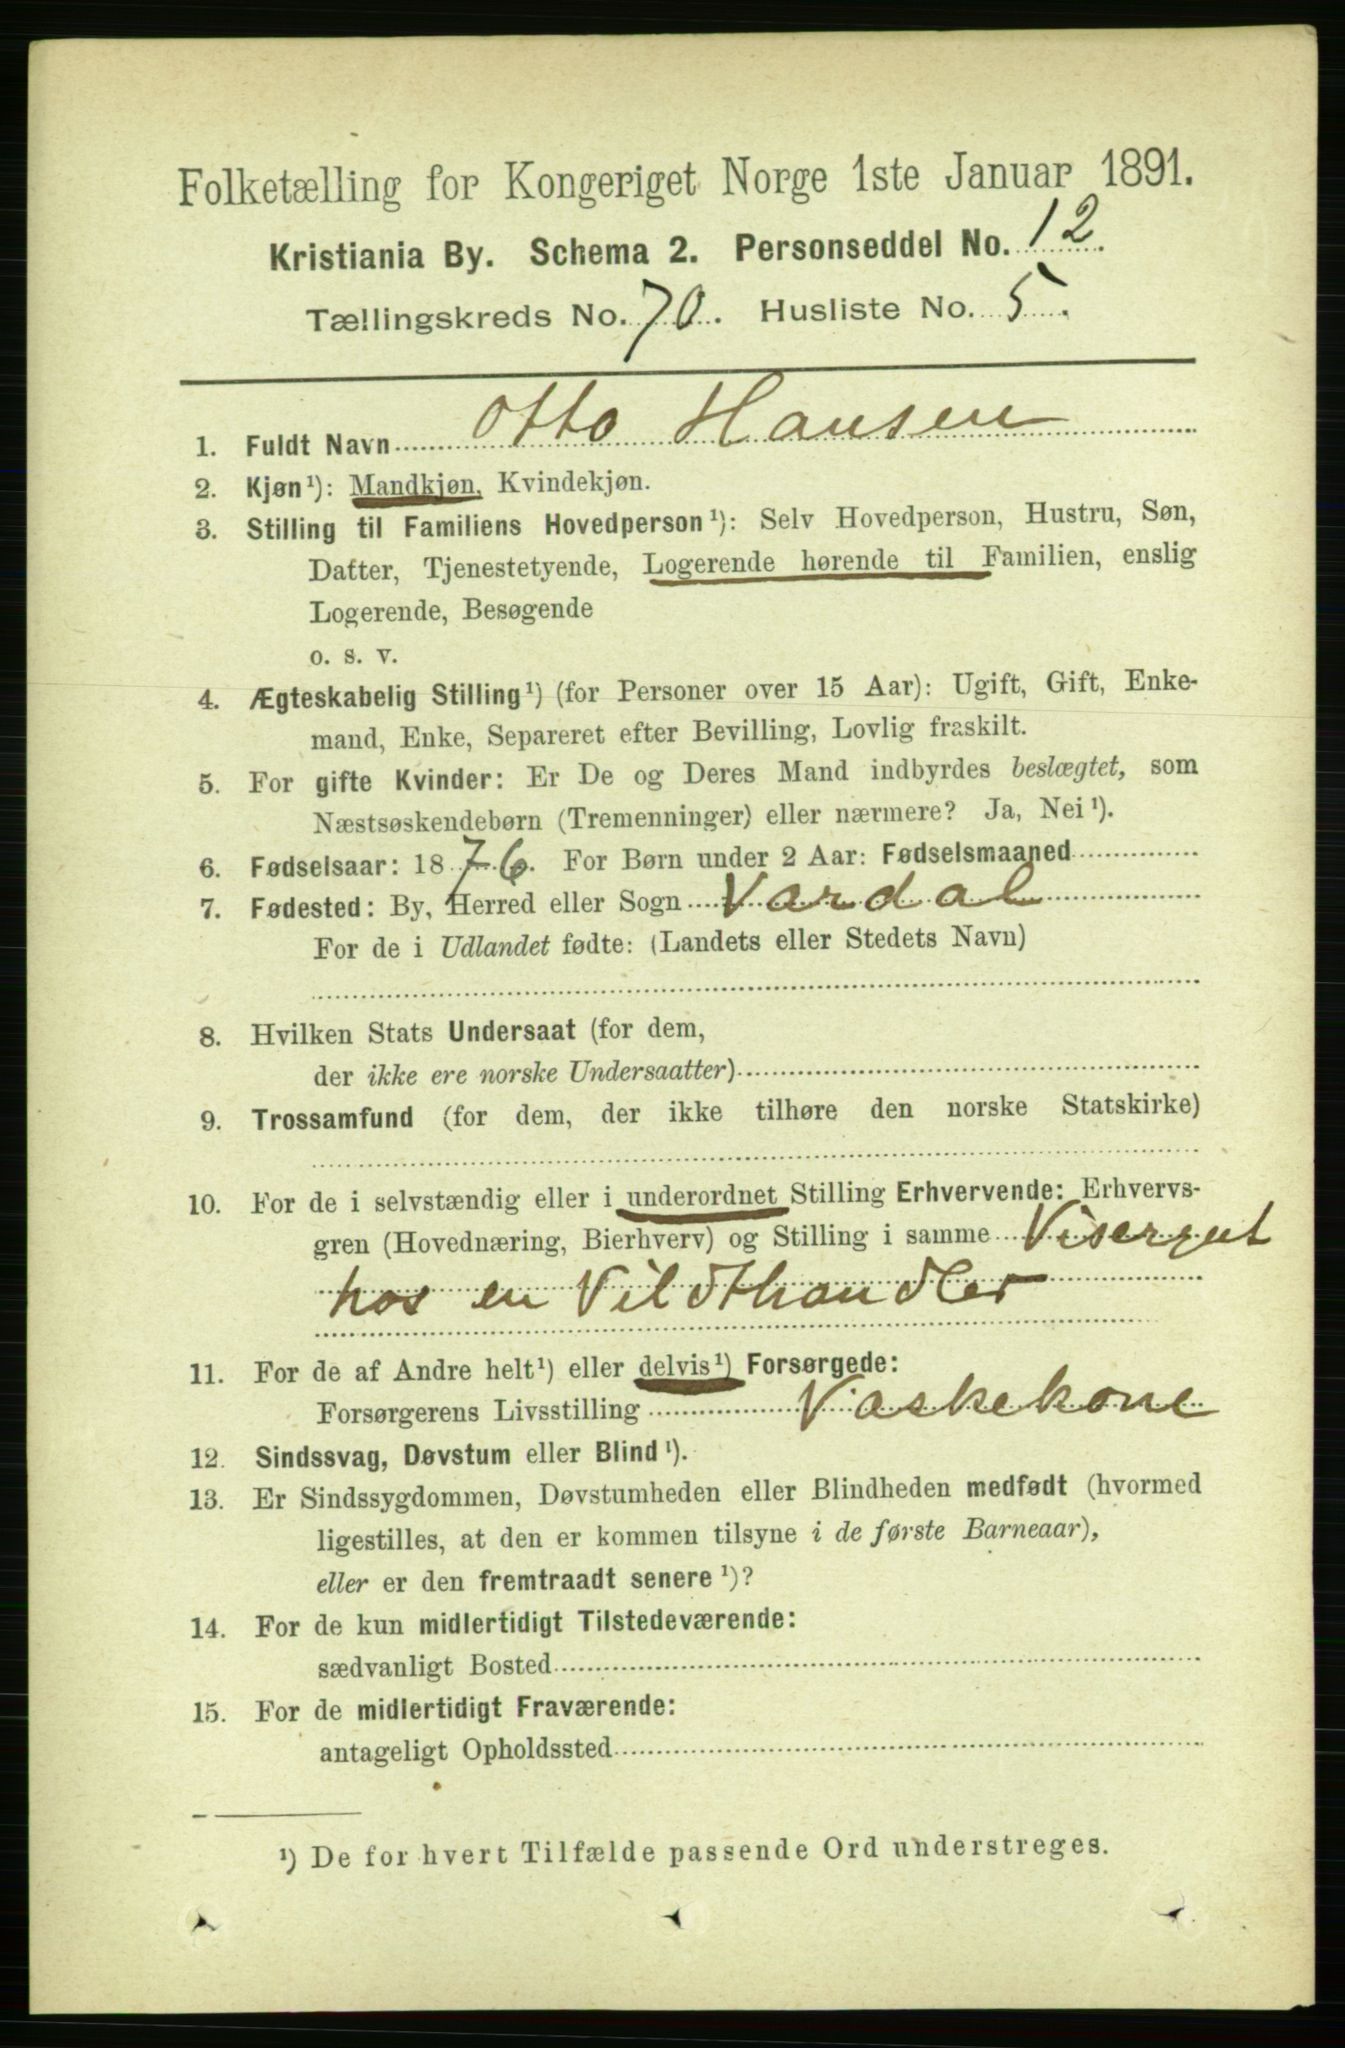 Folketælling for Kongeriget Norge 1ste Januar 1891.
Kristiania By. Schema 2. Personseddel No. 12.
Tællingskreds No. 70. Husliste No. 5.
1. Fuldt Navn Otto Hansen
2. Kjøn¹): Mandkjøn, Kvindekjøn.
3. Stilling til Familiens Hovedperson¹): Selv Hovedperson, Hustru, Søn,
Datter, Tjenestetyende, Logerende hørende til Familien, enslig
Logerende, Besøgende
o. s. v.
4. Ægteskabelig Stilling¹) (for Personer over 15 Aar): Ugift, Gift, Enke-
mand, Enke, Separeret efter Bevilling, Lovlig fraskilt.
5. For gifte Kvinder: Er De og Deres Mand indbyrdes beslægtet, som
Næstsøskendebørn (Tremenninger) eller nærmere? Ja, Nei¹).
6. Fødselsaar: 1876. For Børn under 2 Aar: Fødselsmaaned
7. Fødested: By, Herred eller Sogn Vardal
For de i Udlandet fødte: (Landets eller Stedets Navn)
8. Hvilken Stats Undersaat (for dem,
der ikke ere norske Undersaatter)
9. Trossamfund (for dem, der ikke tilhøre den norske Statskirke)
10. For de i selvstændig eller i underordnet Stilling Erhvervende: Erhvervs-
gren (Hovednæring, Bierhverv) og Stilling i samme Visergut
hos en Vildthandler
11. For de af Andre helt¹) eller delvis¹) Forsørgede:
Forsørgerens Livsstilling Vaskekone
12. Sindssvag, Døvstum eller Blind¹).
13. Er Sindssygdommen, Døvstumheden eller Blindheden medfødt (hvormed
ligestilles, at den er kommen tilsyne i de første Barneaar),
eller er den fremtraadt senere¹)?
14. For de kun midlertidigt Tilstedeværende:
sædvanligt Bosted
15. For de midlertidigt Fraværende:
antageligt Opholdssted
¹) De for hvert Tilfælde passende Ord understreges.